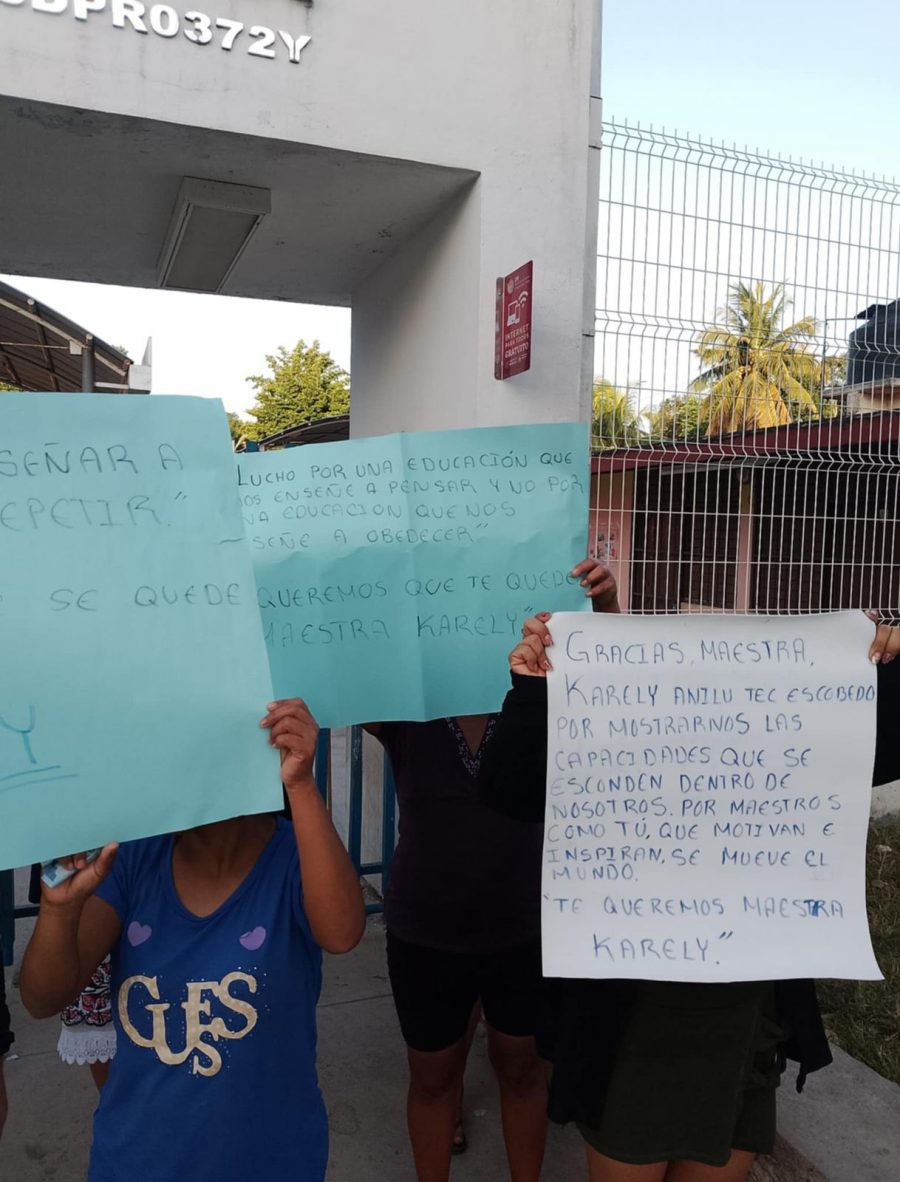 DPR0372Y
INTERNET
PARA TODOS
GRATUITO
SEÑAR A
EPETIR."
SE QUEDE
LUCHO POR UNA EDUCACIÓN QUE
NOS ENSEÑE A PENSAR Y NO POR
NA EDUCACIÓN QUE NOS
SEÑE A OBEDECER"
QUEREMOS QUE TE QUEDE
MAESTRA KARELY"
GRACIAS, MAESTRA,
KARELY ANILU TEC ESCOBEDO
POR MOSTRARNOS LAS
CAPACIDADES QUE SE
ESCONDEN DENTRO DE
NOSOTROS. POR MAESTROS
COMO TÚ, QUE MOTIVAN E
INSPIRAN, SE MUEVE EL
MUNDO.
"TE QUEREMOS MAESTRA
KARELY."
GUESS